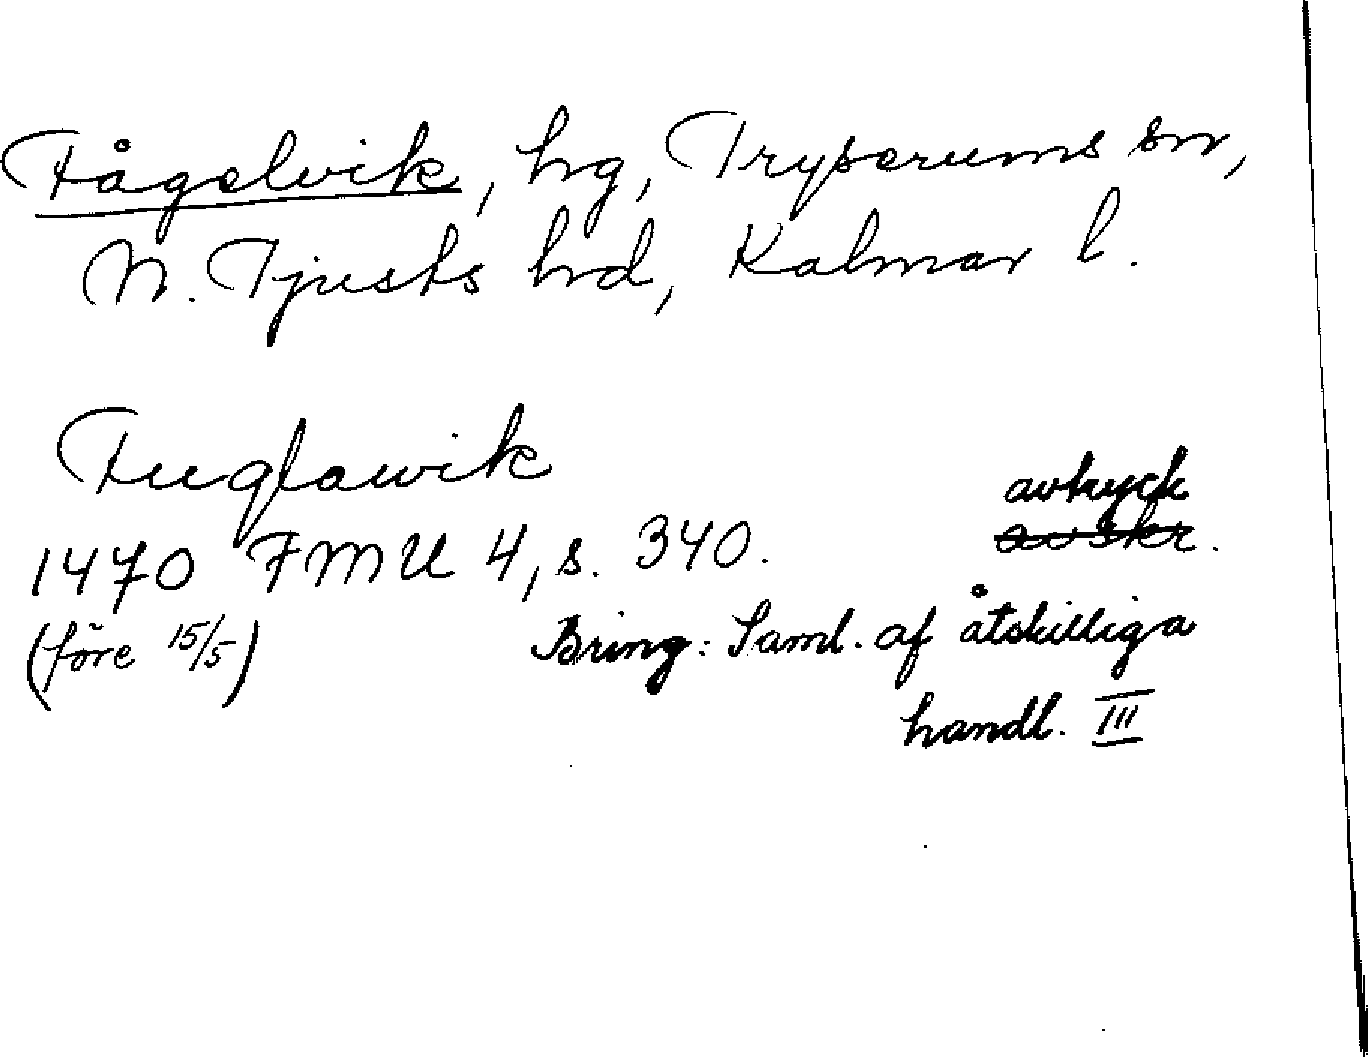 Fågelvik, hg, Tryserums sn,
N. Tjusts hd, Kalmar l.
Fuglawik
avtryck
avskr.
1470 FMU 4, s. 340.
(före 15/5)
Bring: Saml. af åtskilliga
handl. III